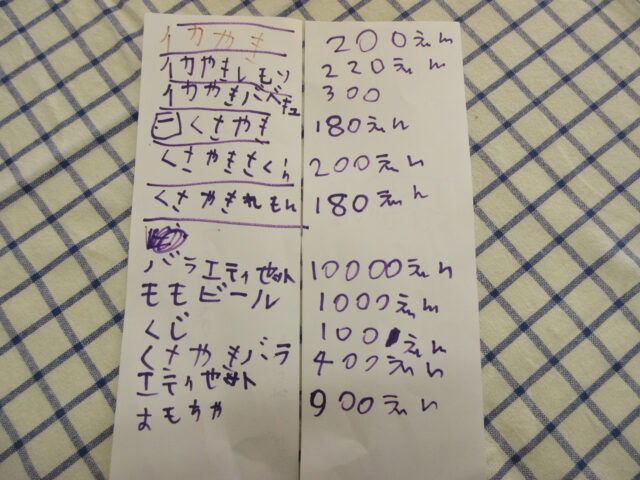 イカやき 200えん
イカやきレモン 220えん
イカやきバベキュ 300
くさやき 180えん
くさやきさくら 200えん
くさやきれもん 180えん
バラエティセット 10000えん
ももビール 1000えん
くじ 100えん
くさやきバラ 400えん
エティセット
おもちゃ 900えん